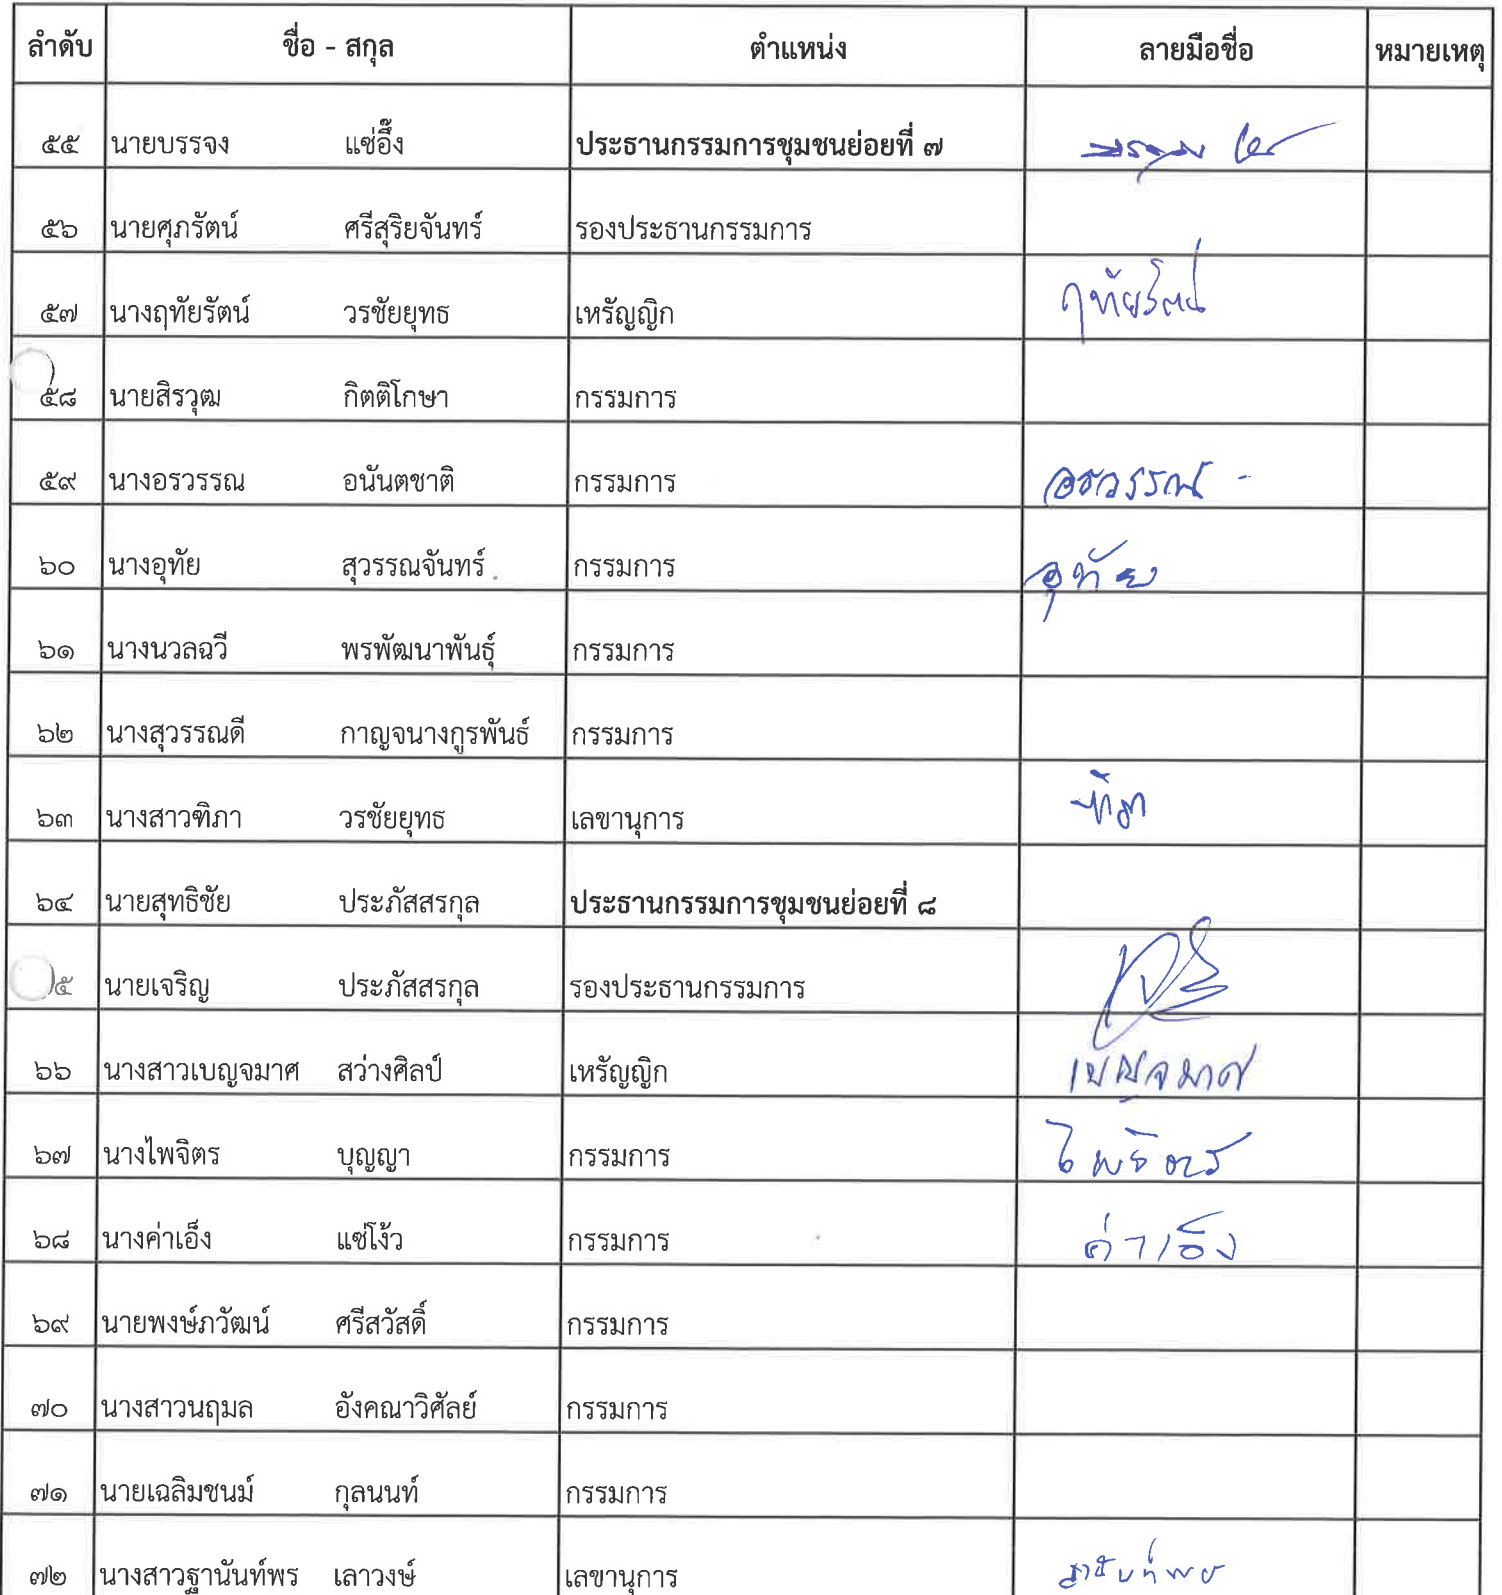 ลำดับ ชื่อ - สกุล ตำแหน่ง ลายมือชื่อ หมายเหตุ
๕๕ นายบรรจง แซ่อึ๊ง ประธานกรรมการชุมชนย่อยที่ ๗
๕๖ นายศุภรัตน์ ศรีสุริยจันทร์ รองประธานกรรมการ
๕๗ นางฤทัยรัตน์ วรชัยยุทธ เหรัญญิก ฤทัยรัตน์
๕๘ นายสิรวุฒ กิตติโกษา กรรมการ
๕๙ นางอรวรรณ อนันตชาติ กรรมการ อรวรรณ
๖๐ นางอุทัย สุวรรณจันทร์ กรรมการ อุทัย
๖๑ นางนวลฉวี พรพัฒนาพันธุ์ กรรมการ
๖๒ นางสุวรรณดี กาญจนางกูรพันธ์ กรรมการ
๖๓ นางสาวฑิภา วรชัยยุทธ เลขานุการ ฑิภา
๖๔ นายสุทธิชัย ประภัสสรกุล ประธานกรรมการชุมชนย่อยที่ ๘
๕ นายเจริญ ประภัสสรกุล รองประธานกรรมการ
๖๖ นางสาวเบญจมาศ สว่างศิลป์ เหรัญญิก เบญจมาศ
๖๗ นางไพจิตร บุญญา กรรมการ ไพจิตร
๖๘ นางค่าเอ็ง แซ่โง้ว กรรมการ ค่าเอ็ง
๖๙ นายพงษ์ภวัฒน์ ศรีสวัสดิ์ กรรมการ
๗๐ นางสาวนฤมล อังคณาวิศัลย์ กรรมการ
๗๑ นายเฉลิมชนม์ กุลนนท์ กรรมการ
๗๒ นางสาวฐานันท์พร เลาวงษ์ เลขานุการ ฐานันท์พร